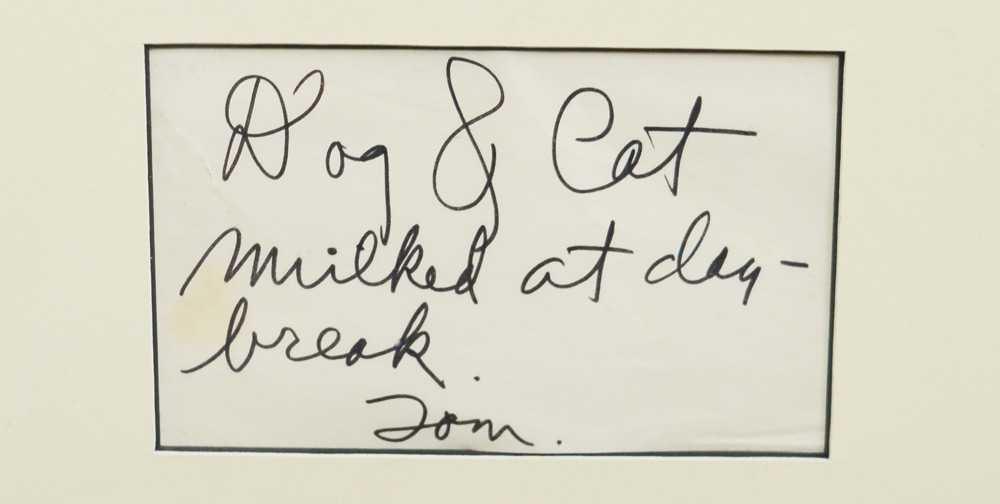 Dog & Cat
milked at day-
break.
Tom.